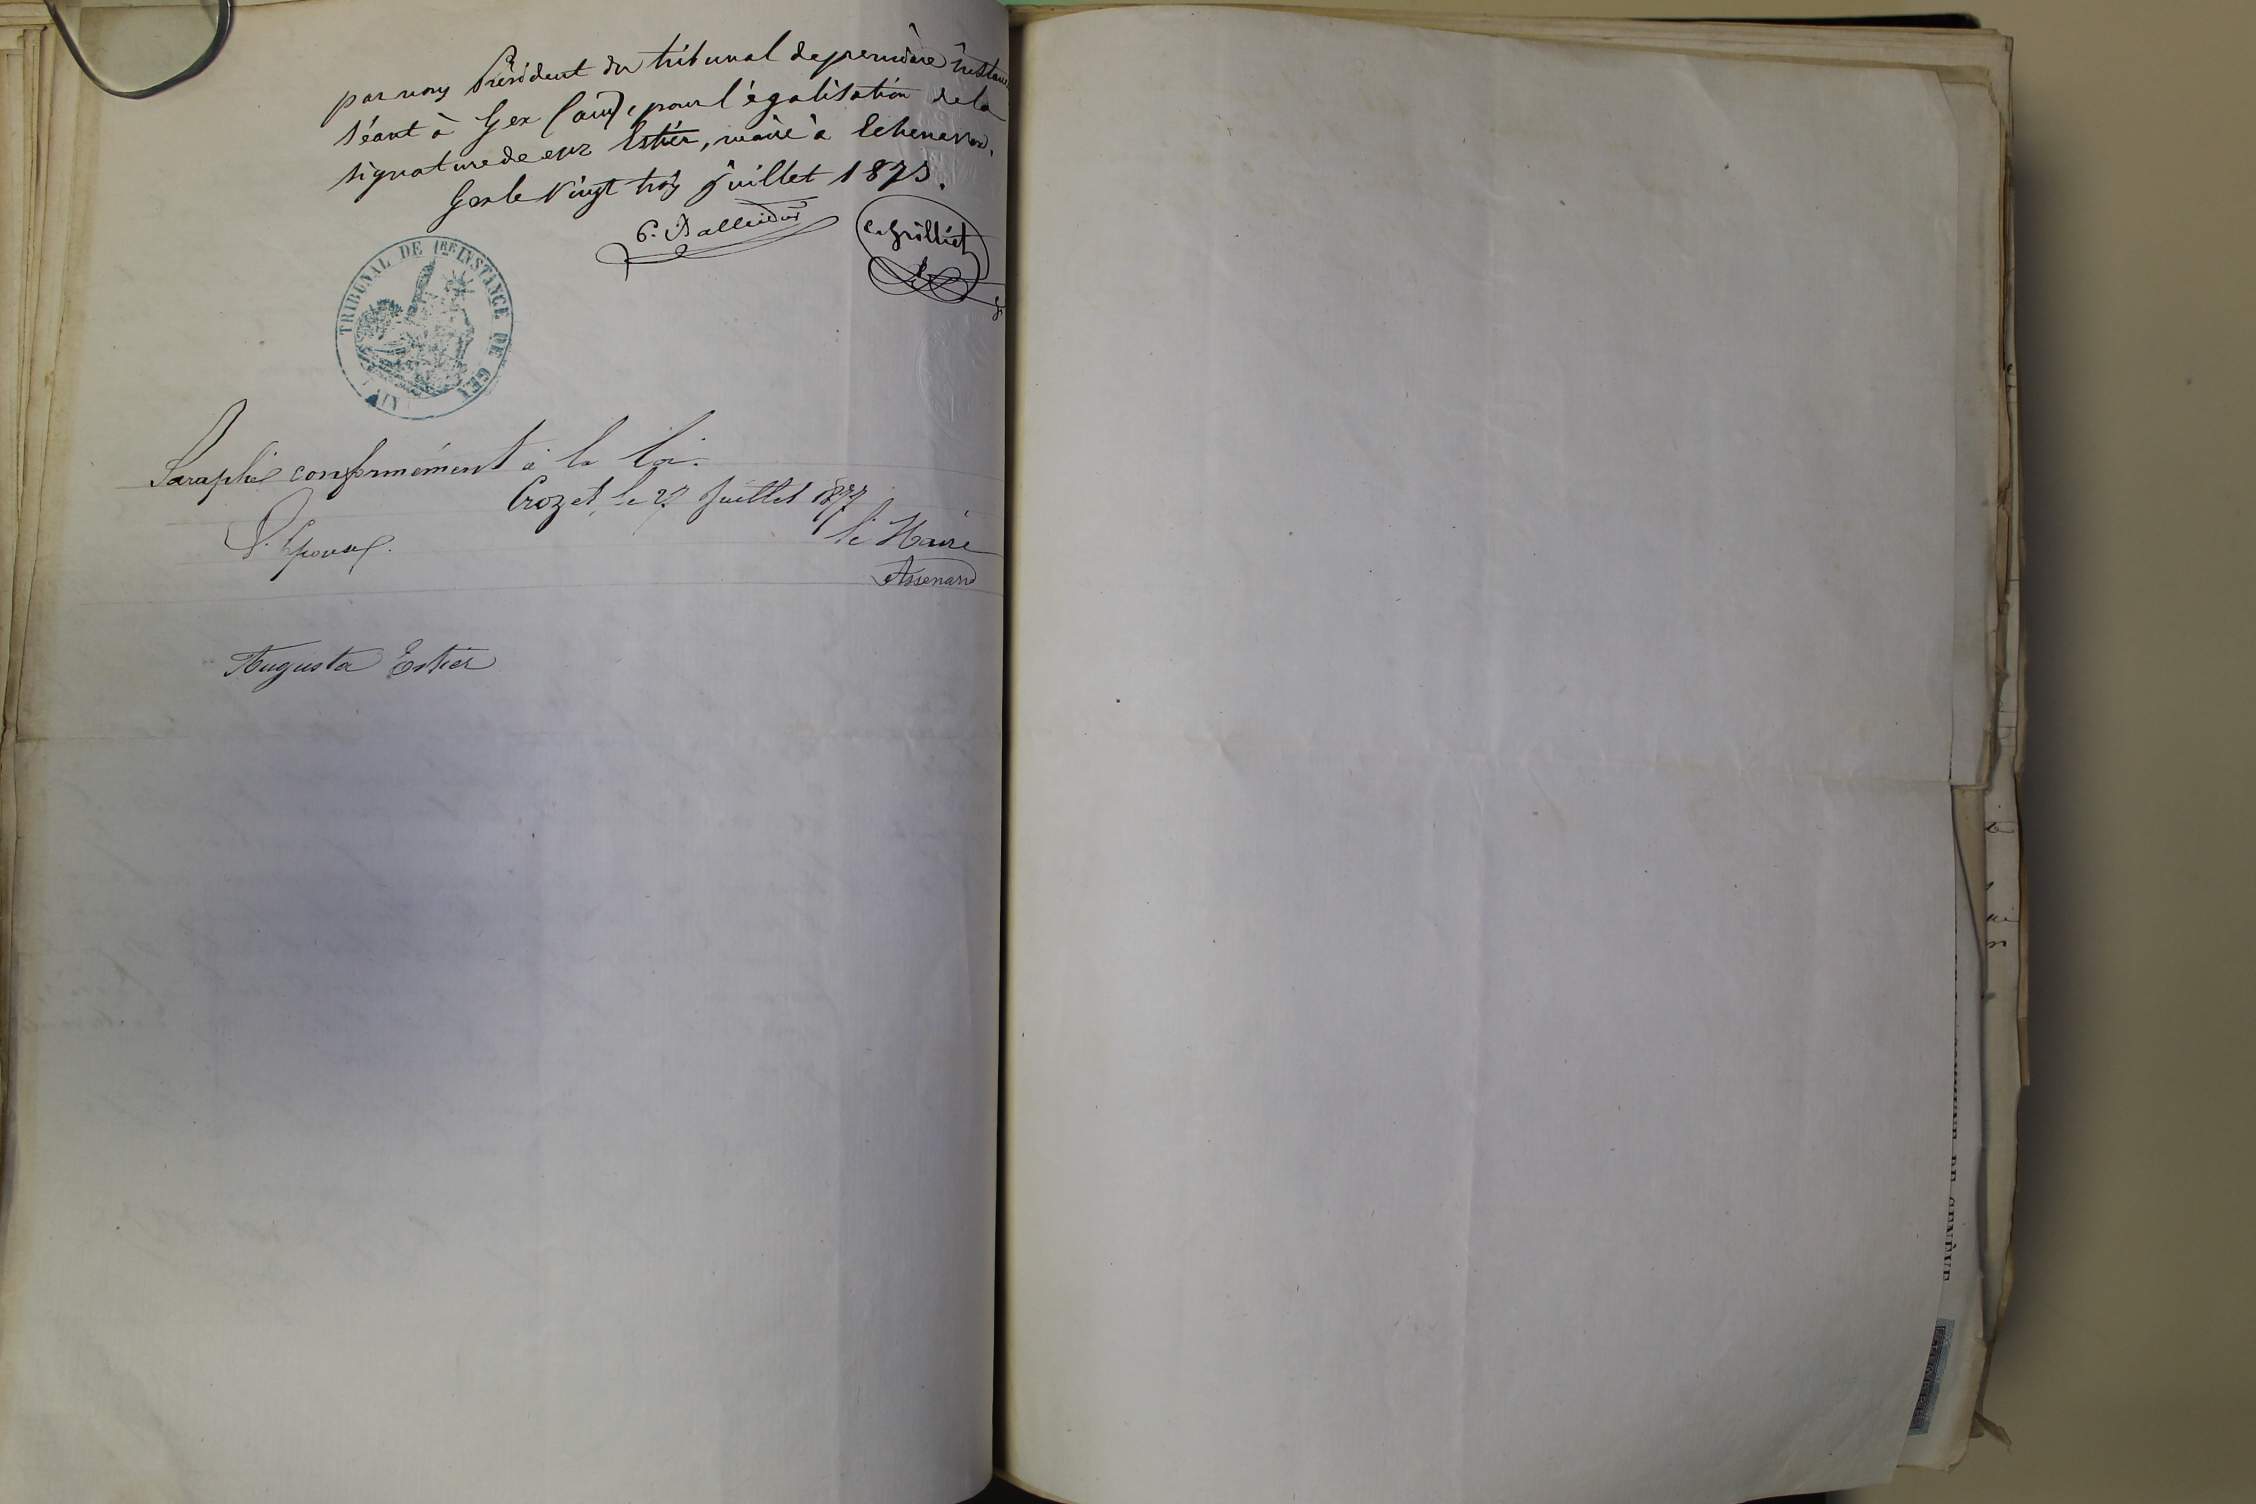 par nous Président du tribunal de première instance
séant à Gex (ain), pour légalisation de la
signature de Mr Estier, maire à Echenevex.
Gex le vingt trois juillet 1875.
C. Grilliet
TRIBUNAL DE 1RE INSTANCE DE GEX
(AIN)
Paraphé conformément à la loi.
Crozet, le 27 Juillet 1877
le Maire
L'Epouse.
Assenard
Augusta Estier
COMMUNE DE GENÈVE